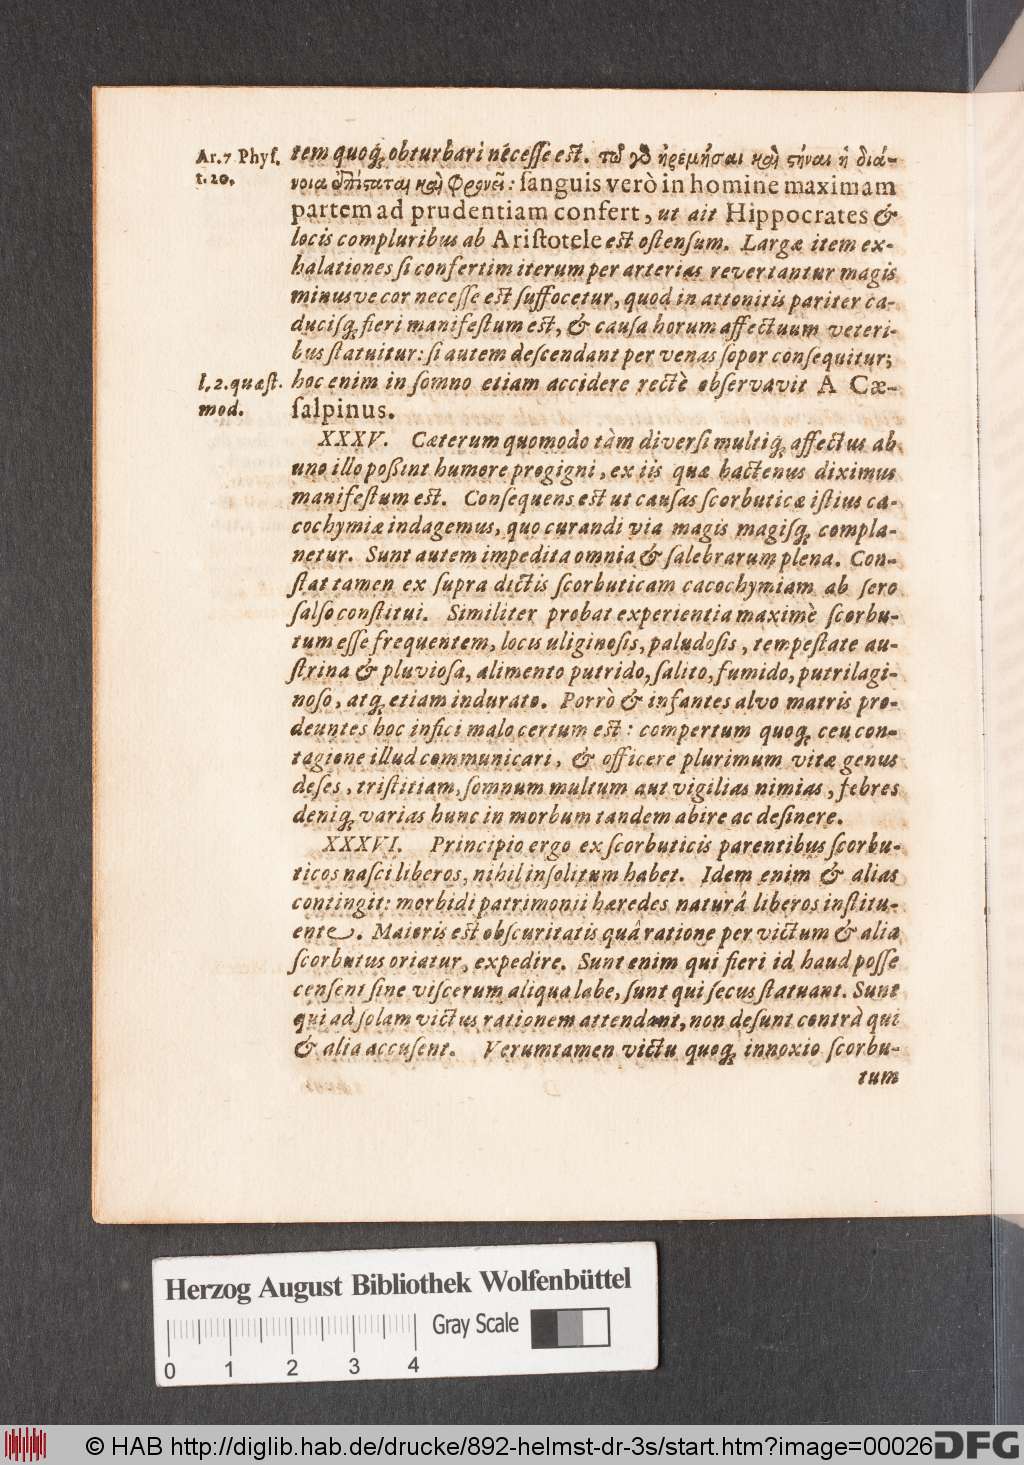 Ar.7 Phyſ.
t.20.
tem quoq; obturbari néceſſe est. τῷ γὸ ἠρεμῆσαι καὶ ςῆναι ἡ διά-
νοια ἐπίςαται καὶ Φρονεῖ: ſanguis verò in homine maximam
partem ad prudentiam confert, ut ait Hippocrates &
locis compluribus ab Ariſtotele est oſtenſum. Largæ item ex-
halationes ſi confertim iterum per arterias revertantur magis
minusve cor neceſſe est ſuffocetur, quod in attonitis pariter ca-
duciſq; fieri manifeſtum est, & cauſa horum affectuum veteri-
bus ſtatuitur: ſi autem deſcendant per venas ſopor conſequitur;
l.2.quæſt.
mod.
hoc enim in ſomno etiam accidere rectè obſervavit A Cæ-
ſalpinus.
XXXV. Cæterum quomodo tàm diverſi multiq; affectus ab
uno illo poßint humore progigni, ex iis quæ hactenus diximus
manifeſtum est. Conſequens est ut cauſas ſcorbuticæ iſtius ca-
cochymiæ indagemus, quo curandi via magis magiſq; compla-
netur. Sunt autem impedita omnia & ſalebrarum plena. Con-
ſtat tamen ex ſupra dictis ſcorbuticam cacochymiam ab ſero
ſalſo conſtitui. Similiter probat experientia maximè ſcorbu-
tum eſſe frequentem, locis uliginoſis, paludoſis, tempeſtate au-
ſtrina & pluvioſa, alimento putrido, ſalito, fumido, putrilagi-
noſo, atq; etiam indurato. Porrò & infantes alvo matris pro-
deuntes hoc infici malo certum est: compertum quoq; ceu con-
tagione illud communicari, & officere plurimum vitæ genus
deſes, triſtitiam, ſomnum multum aut vigilias nimias, febres
deniq; varias hunc in morbum tandem abire ac deſinere.
XXXVI. Principio ergo ex ſcorbuticis parentibus ſcorbu-
ticos naſci liberos, nihil inſolitum habet. Idem enim & alias
contingit: morbidi patrimonii hæredes naturâ liberos inſtitu-
ente. Maioris est obſcuritatis quâ ratione per victum & alia
ſcorbutus oriatur, expedire. Sunt enim qui fieri id haud poſſe
cenſent ſine viſcerum aliqua labe, ſunt qui ſecus ſtatuant. Sunt
qui ad ſolam victus rationem attendant, non deſunt contrà qui
& alia accuſent. Verumtamen victu quoq; innoxio ſcorbu-
tum
Herzog August Bibliothek Wolfenbüttel
Gray Scale
0 1 2 3 4
© HAB http://diglib.hab.de/drucke/892-helmst-dr-3s/start.htm?image=00026
DFG